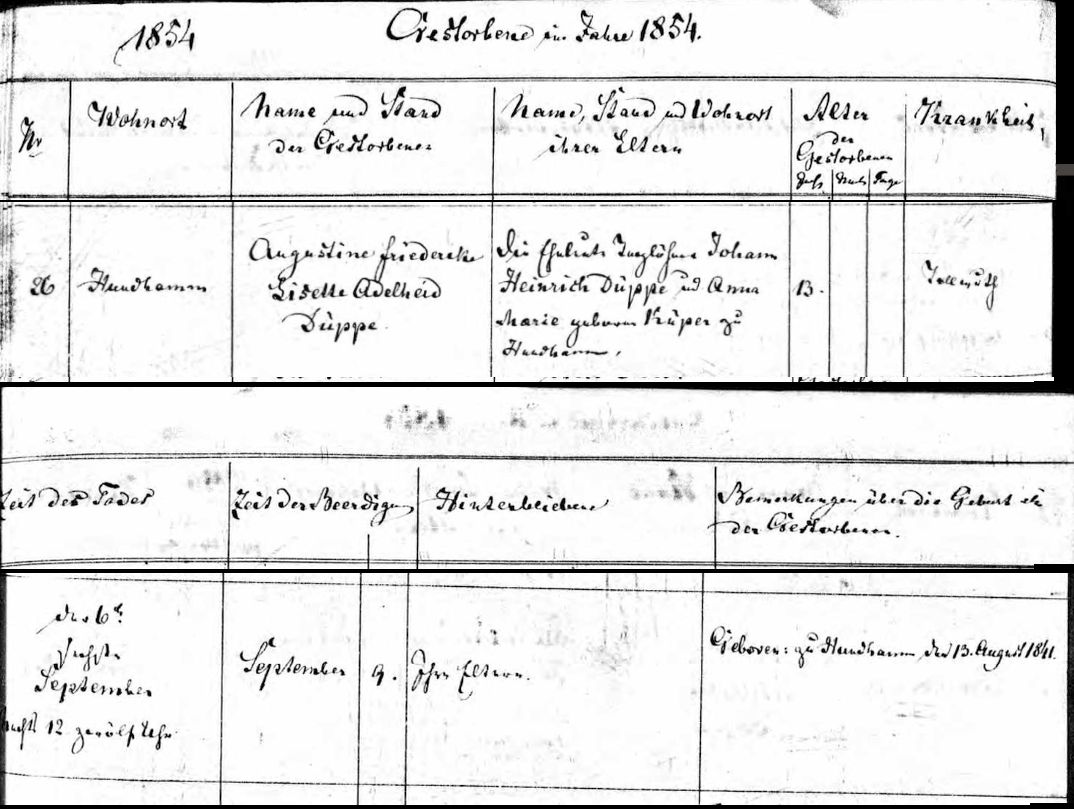 1854
Gestorbene im Jahre 1854.
Nr
Wohnort
Name und Stand
der Gestorbenen
Name, Stand und Wohnort
ihrer Eltern
Alter
der
Gestorbenen
Jahr Mont Tage
Krankheit,
26
Hundhamm
Augustine Friedericke
Lisette Adelheid
Düppe
Die Eheleute Tagelöhner Johann
Heinrich Düppe und Anna
Marie geborne Küper zu
Hundhamm,
13.
Zeit des Todes
Zeit der Beerdigung
Hinterbliebene
Bemerkungen über die Geburt etc
der Gestorbenen.
den 6t.
Sechsten
September
Nachts 12 zwölf Uhr
September
9.
Ihre Eltern.
Geboren: zu Hundhamm, den 13. August 1841.